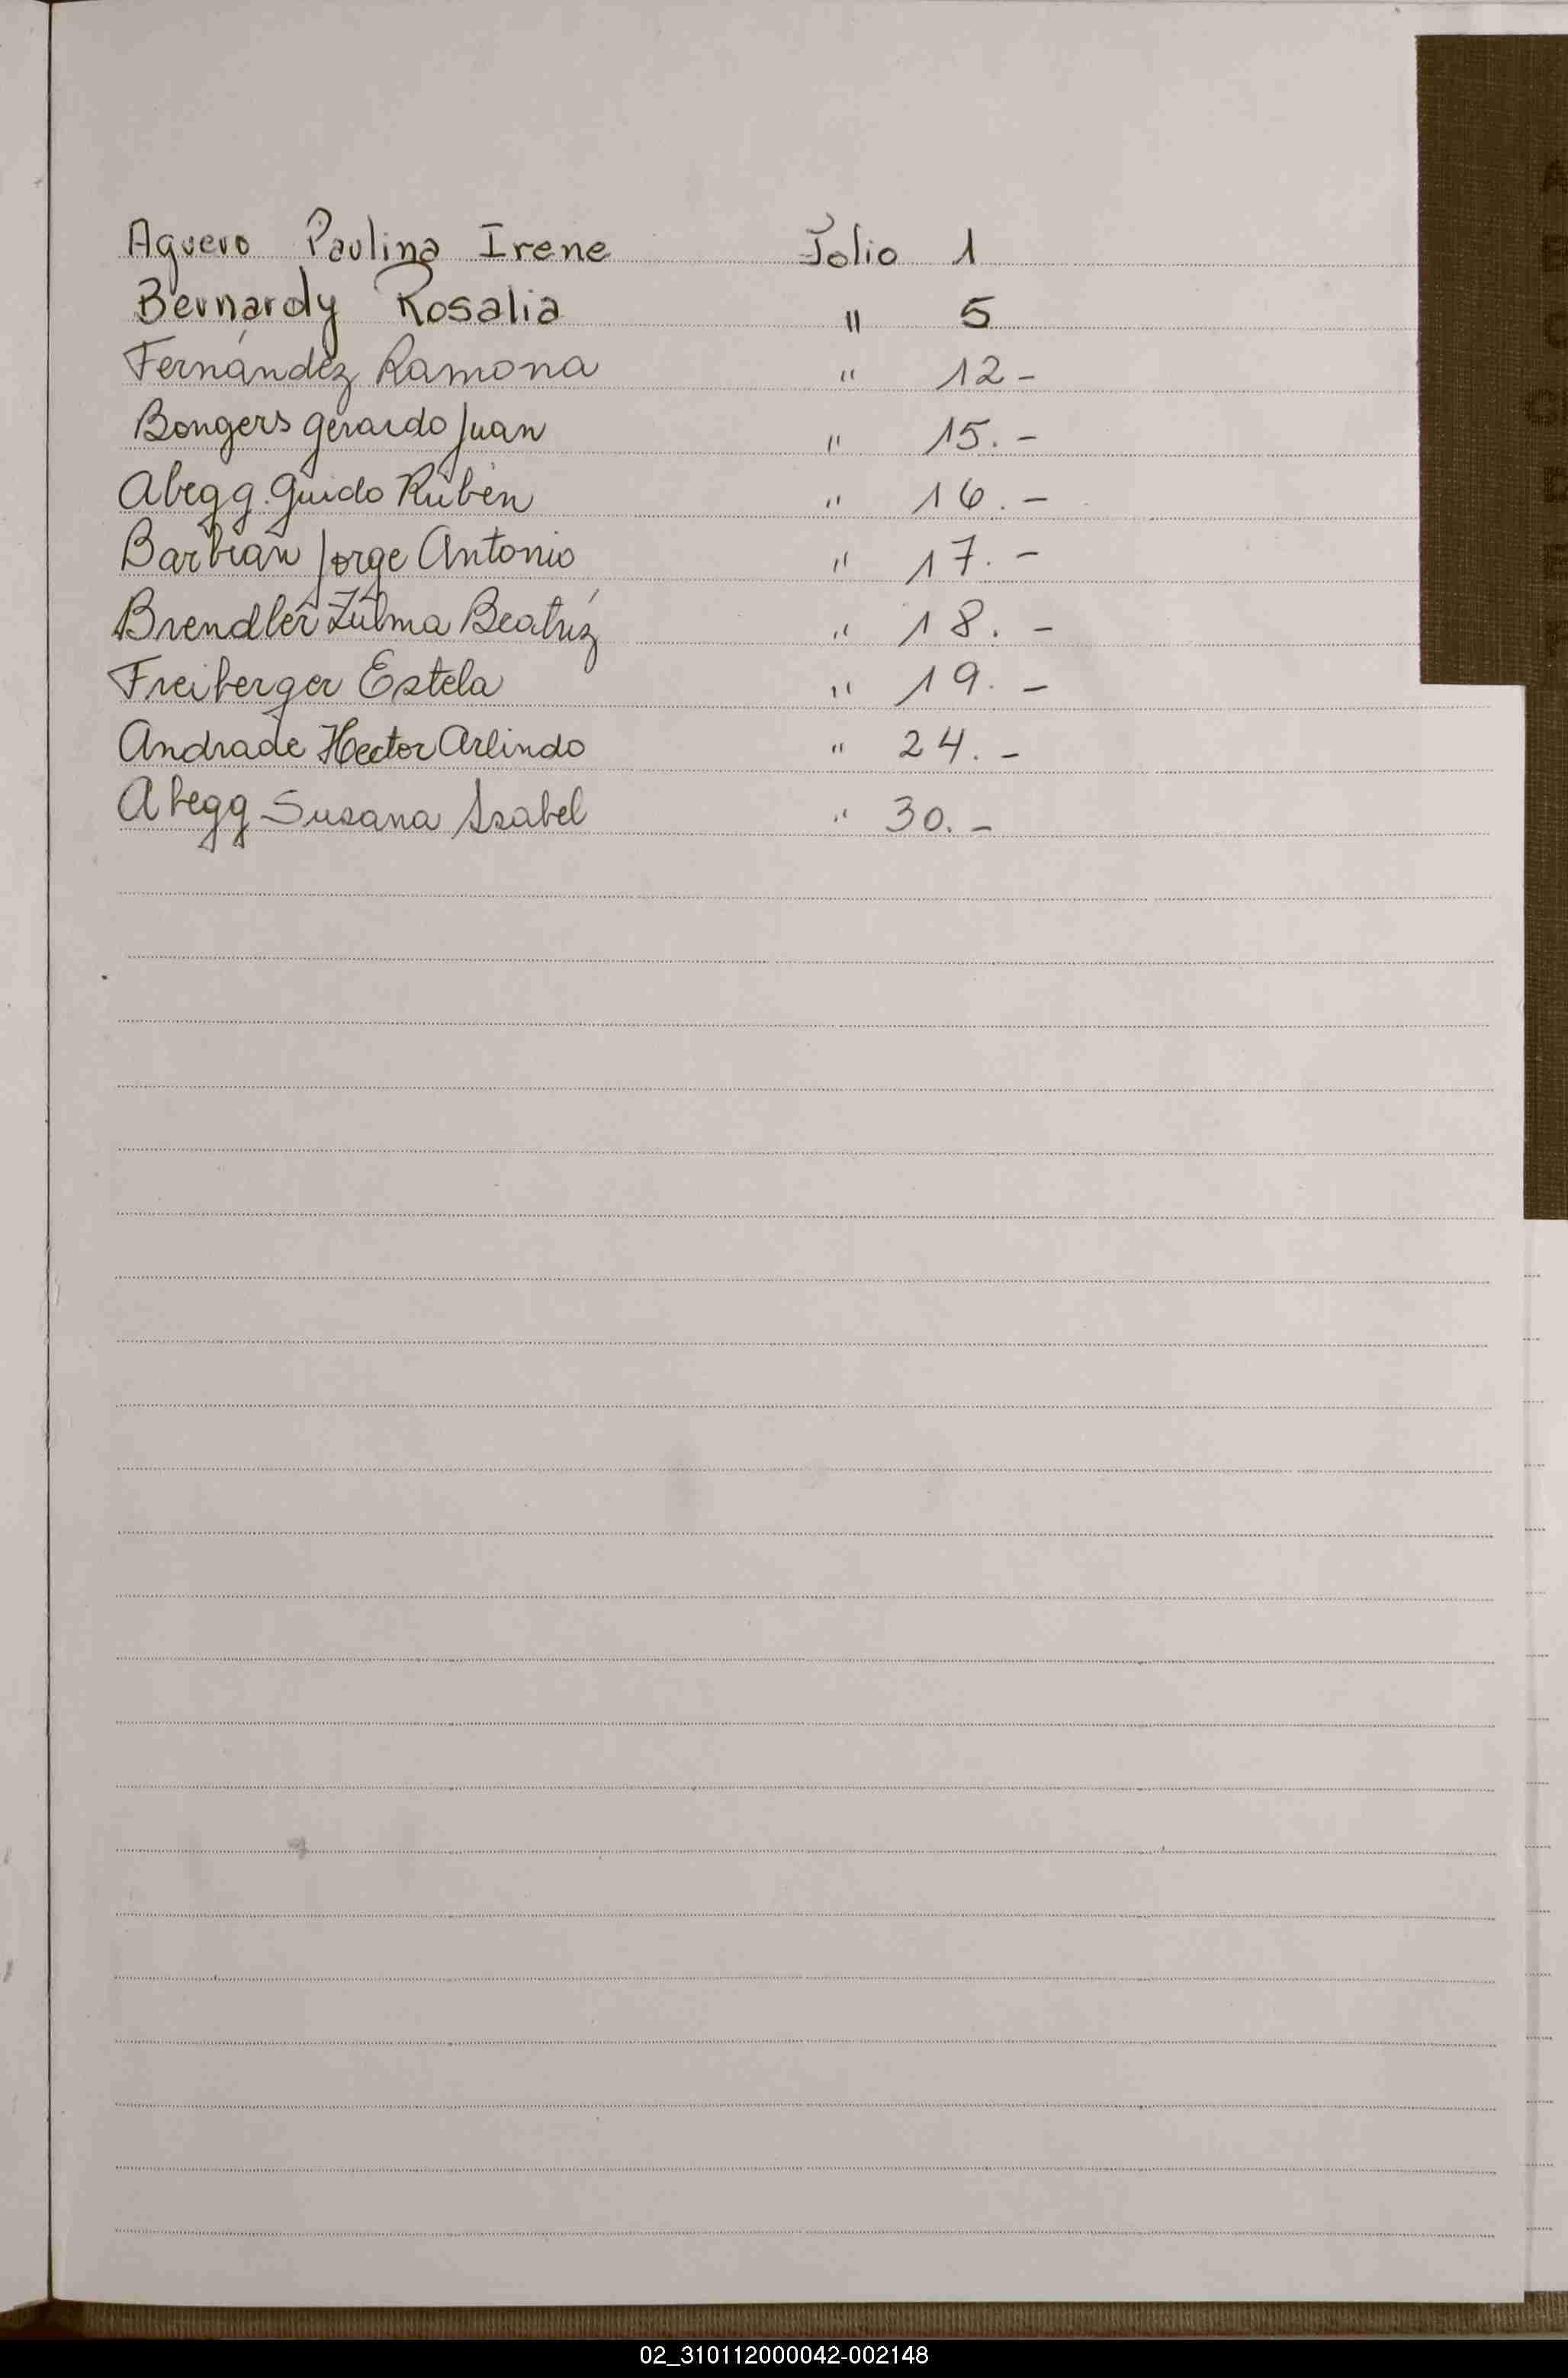 Aguero Paulina Irene Folio 1
Bernardy Rosalia " 5
Fernández Ramona " 12 -
Bongers Gerardo Juan " 15. -
Abegg Guido Rubén " 16. -
Barbian Jorge Antonio " 17. -
Brendler Zulma Beatriz " 18. -
Freiberger Estela " 19. -
Andrade Hector Arlindo " 24. -
Abegg Susana Isabel " 30. -
02_310112000042-002148